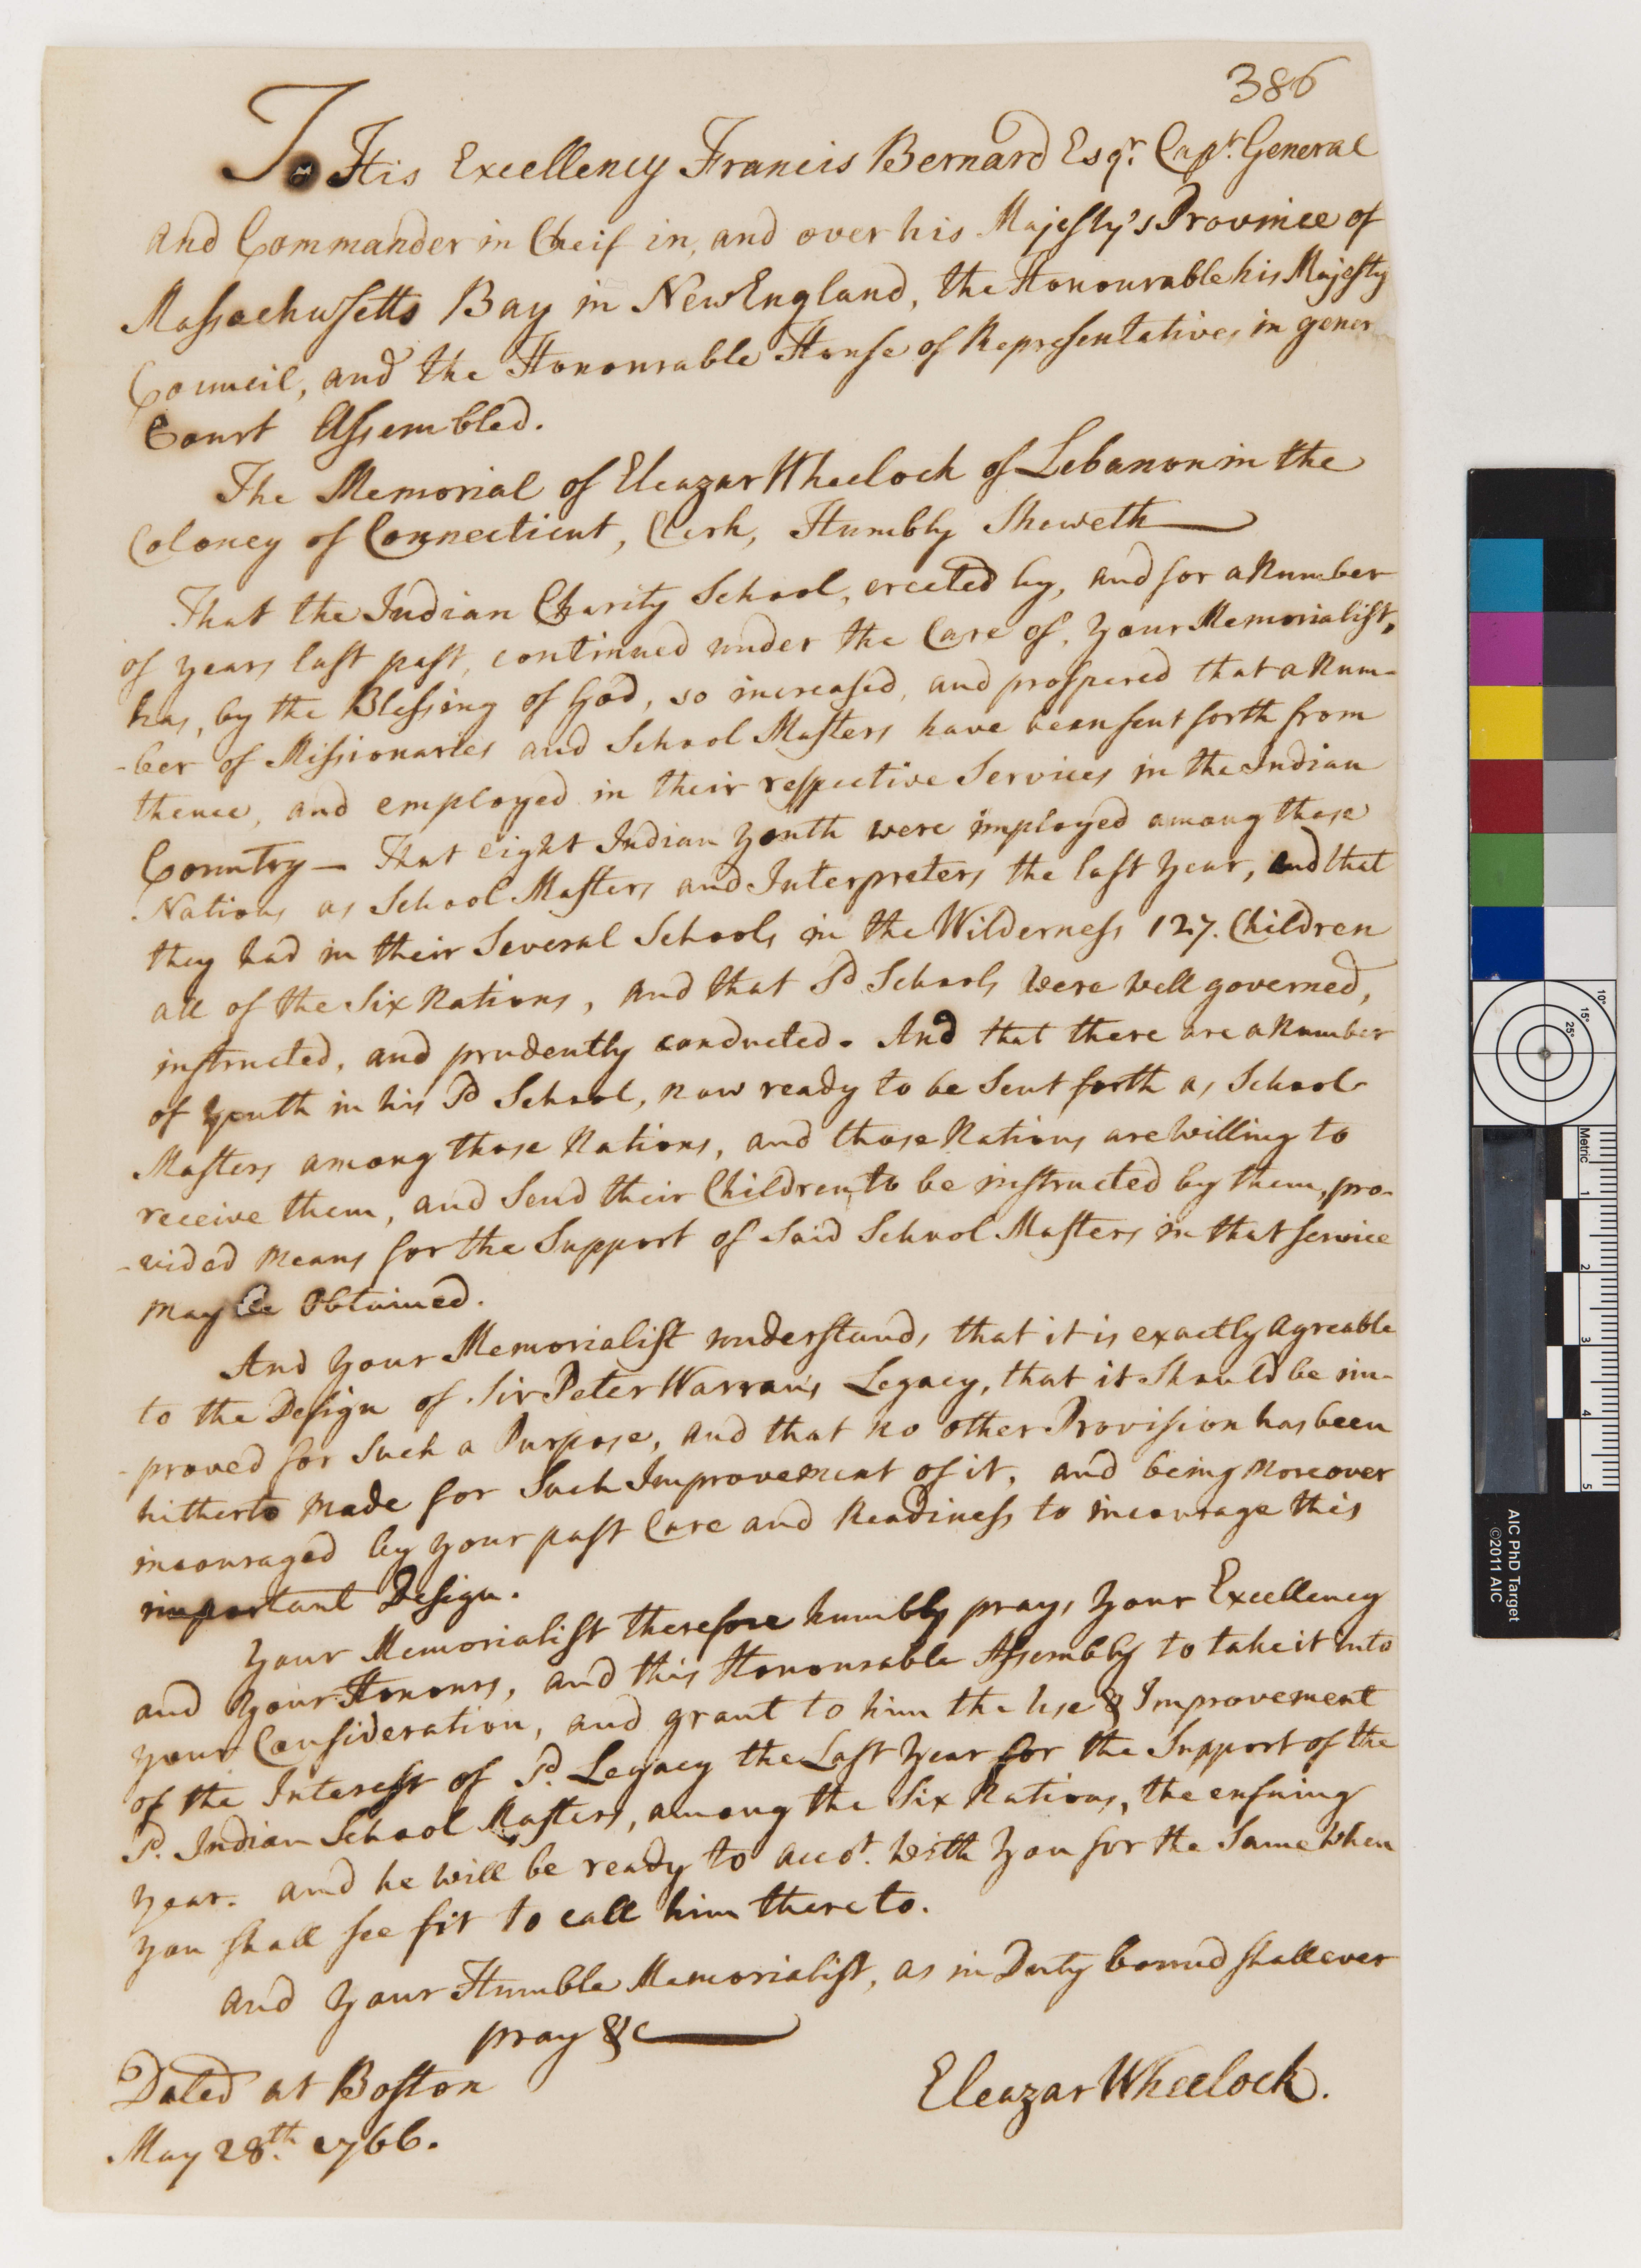 386
To His Excellency Francis Bernard Esqr. Capt. General
and Commander in Cheif in, and over his Majesty's Province of
Massachusetts Bay in New England, the Honourable his Majesty
Council, and the Honourable House of Representatives in gener
Court Assembled.
The Memorial of Eleazar Wheelock of Lebanon in the
Coloney of Connecticut, Clerk, Humbly Sheweth
That the Indian Charity School, erected by, and for a Number
of years last past, continued under the Care of, your Memorialist,
has, by the Blessing of God, so increased, and prospered that a Num-
-ber of Missionaries and School Masters have been sent forth from
thence, and employed in their respective Services in the Indian
Country — That eight Indian Youth were imployed among those
Nations as School Masters and Interpreters the last year, and that
they had in their Several Schools in the Wilderness 127. Children
all of the Six Nations, and that Sd Schools were well governed,
instructed, and prudently conducted. And that there are a Number
of youth in his Sd School, now ready to be Sent forth as School
Masters among those Nations, and those Nations are willing to
receive them, and Send their Children, to be instructed by them, pro-
-vided means for the Support of Said School Masters in that service
may be Obtained.
And your Memorialist understands that it is exactly agreable
to the Design of Sir Peter Warran's Legacy, that it Should be im-
-proved for Such a Purpose, and that no other Provision has been
hitherto made for Such Improvement of it, and being moreover
incouraged by your past Care and Readiness to incourage this
important Design.
Your Memorialist therefore humbly prays your Excellency
and your Honours, and this Honourable Assembly to take it into
your Consideration, and grant to him the Use & Improvement
of the Interest of Sd. Legacy the Last year for the Support of the
Sd. Indian School Masters, among the Six Nations, the ensuing
year. and he will be ready to accot. with you for the Same when
you shall see fit to call him thereto.
And your Humble Memorialist, as in Duty bound shall ever
pray &c
Dated at Boston
May 28th. 1766.
Eleazar Wheelock.
10°
15°
25°
Metric
1
2
3
4
5
AIC PhD Target
©2011 AIC